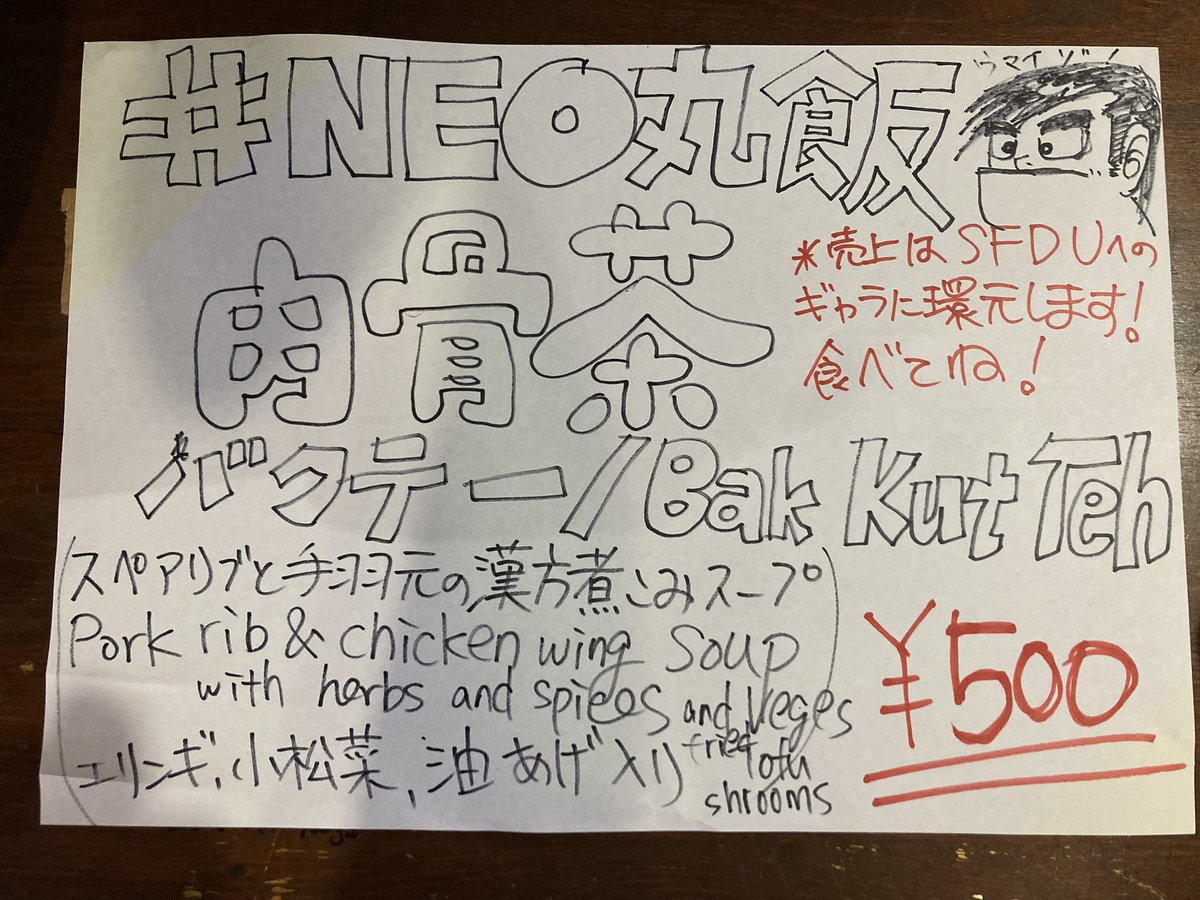 #NEO丸飯
ウマイゾ！
肉骨茶
*売上はSFDUへの
ギャラに環元します!
食べてね!
バクテー/Bak Kut Teh
スペアリブと手羽元の漢方煮こみスープ
Pork rib & chicken wing soup
with herbs and spices and veges
エリンギ、小松菜、油あげ入り
fried tofu
shrooms
¥500